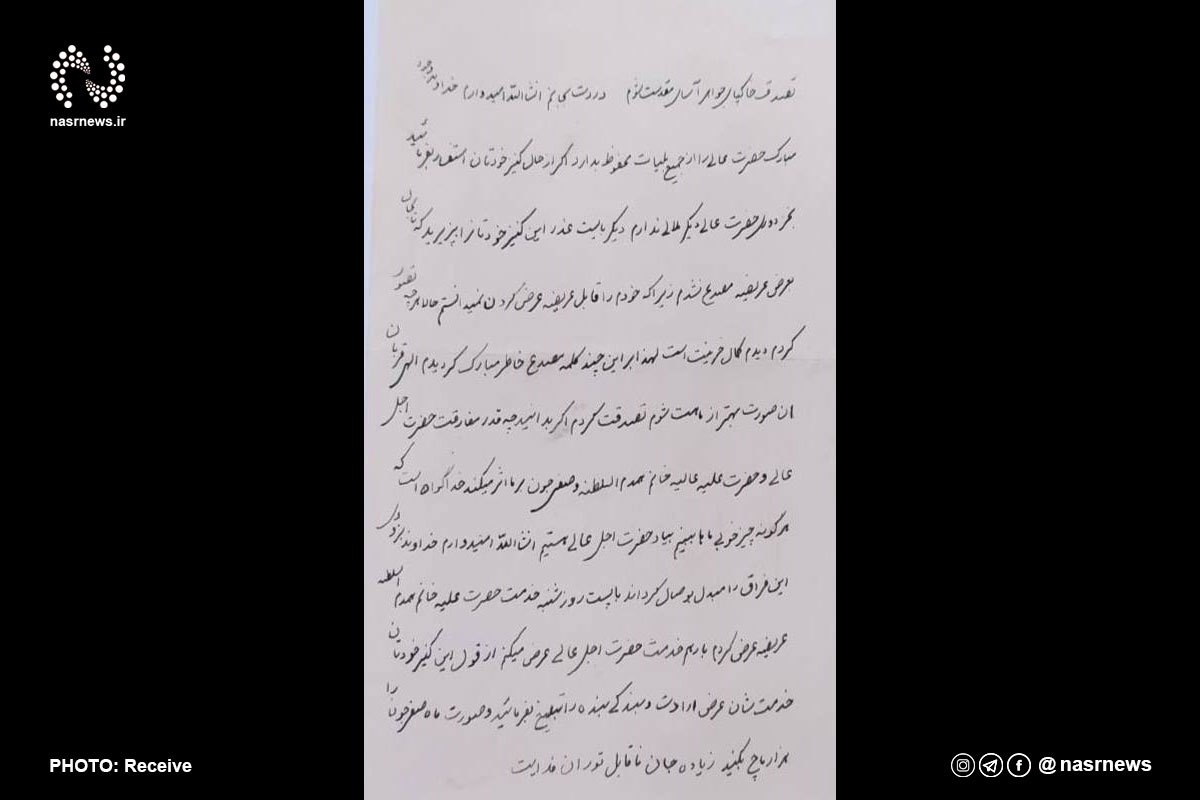 nasrnews.ir
تصدق خاکپای جواهر آسای مقدست شوم دردت بجانم انشاالله امیدوارم خداوند وجود
مبارک حضرت عالی را از جمیع بلیات محفوظ بدارد اگر از حال کنیز خودتان استفسار بفرمائید
بجز دوری حضرت عالی دیگر ملالی ندارم دیگر بایست عذر این کنیز خودتانرا بپزیرید که تا بحال
بعرض عریضه مصدع نشدم زیرا که خودم را قابل عریضه عرض کردن نمیدانستم حالا هر چه تصور
کردم دیدم کمال خریت است لهذا بر این چند کلمه مصدع خاطر مبارک کردیدم الهی قربان
ان صورت بهتر از ماهت شوم تصدقت کردم اکر بدانید چه قدر مفارقت حضرت اجل
عالی و حضرت علیه عالیه خانم همدم السلطنه و صغری جون بر ما اثر میکند خدا گواه است که
هر گونه چیز خوبی ماها ببینیم بیاد حضرت اجل عالی هستیم انشاالله امیدوارم خداوند بزودی
این فراق را مبدل بوصال کرداند با پست روز شنبه خدمت حضرت علیه خانم همدم السلطنه
عریضه عرض کردم بازهم خدمت حضرت اجل عالی عرض میکنم از قول این کنیز خودتان
خدمت شان عرض ارادت و بندکی بنده را تبلیغ بفرمائید و صورت ماه صغری جون را
هزار ماچ بکنید زیاده جان ناقابل توران فدایت
PHOTO: Receive
@nasrnews